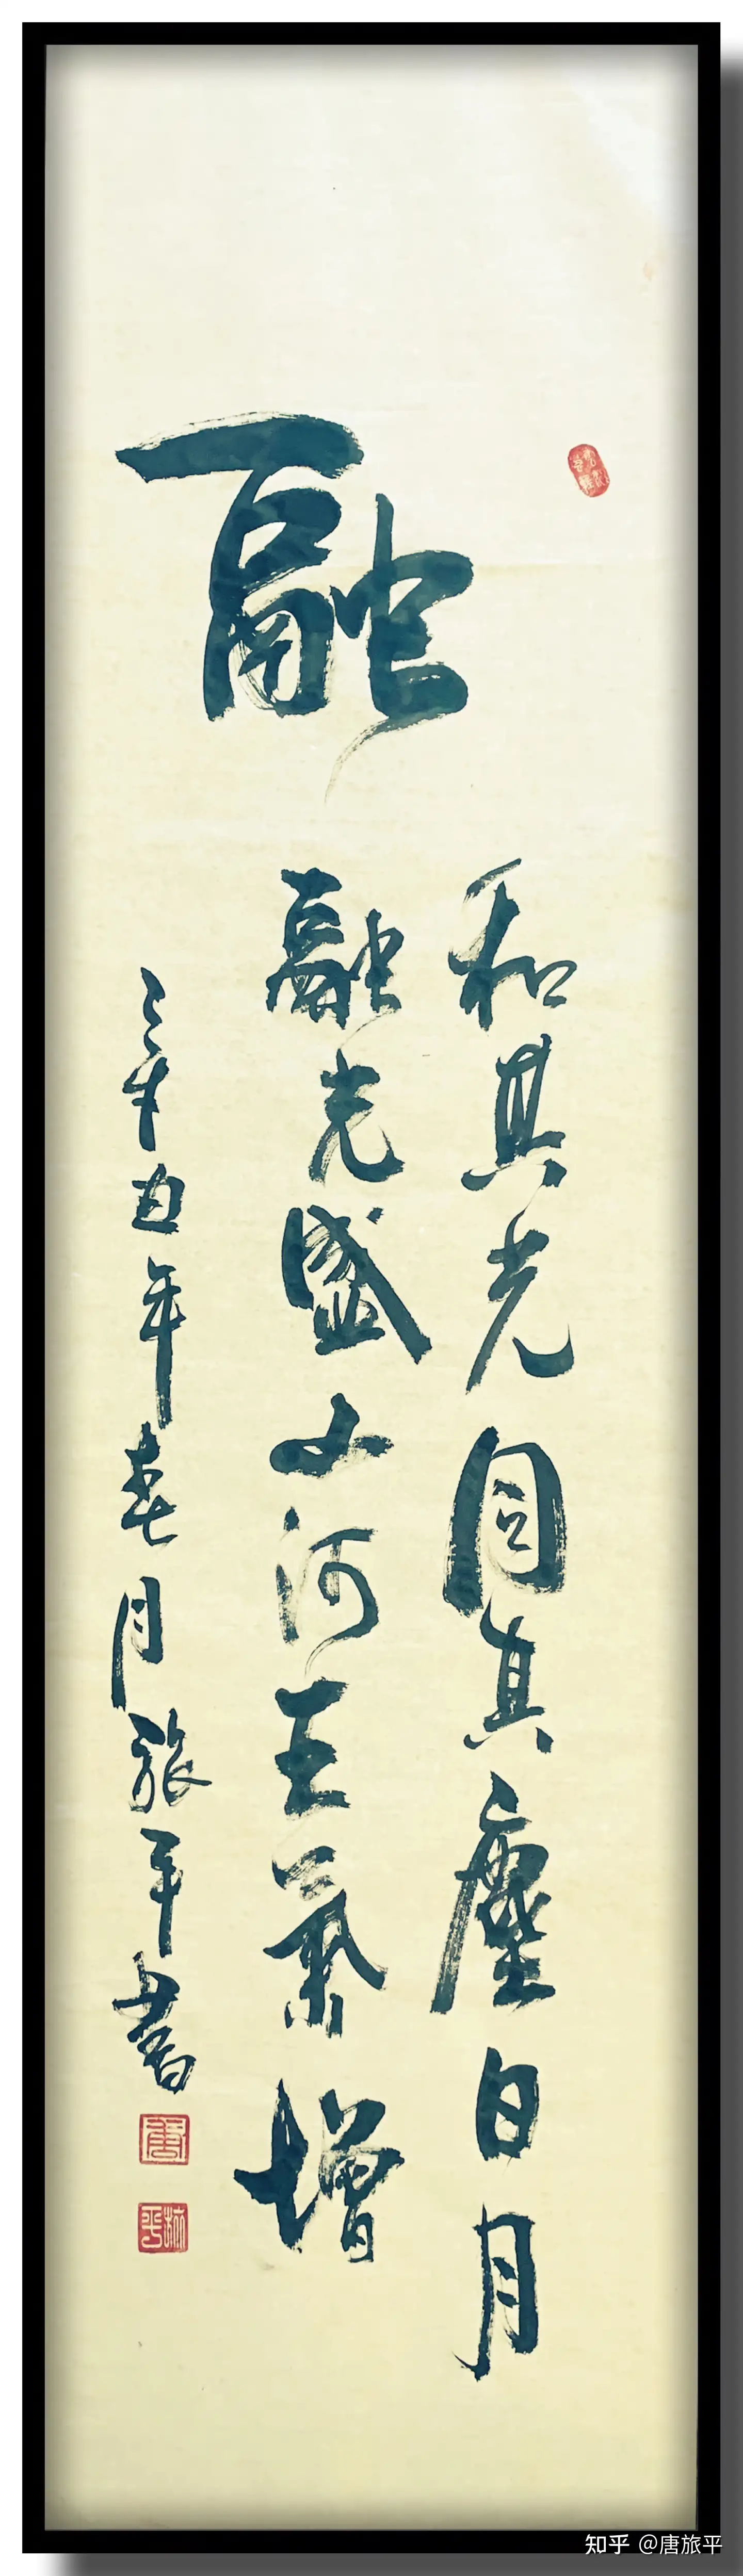 融
和其光同其塵日月
融光盛山河王氣增
辛丑年春月旅平書
唐
旅平
知乎 @唐旅平